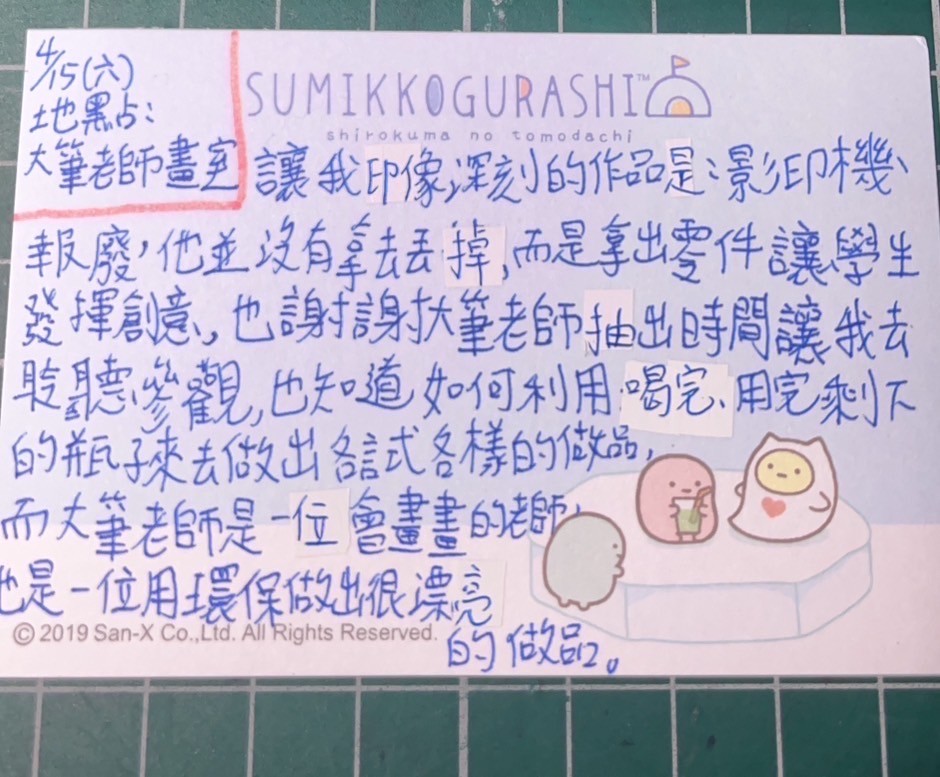 4/15(六)
地點：
大筆老師畫室
SUMIKKOGURASHI™
shirokuma no tomodachi
讓我印像深刻的作品是：影印機、
報廢，他並沒有拿去丟掉，而是拿出零件讓學生
發揮創意，也謝謝大筆老師抽出時間讓我去
聆聽參觀，也知道如何利用喝完、用完剩下
的瓶子來去做出各式各樣的做品，
而大筆老師是一位會畫畫的老師，
也是一位用環保做出很漂亮
的做品。
© 2019 San-X Co.,Ltd. All Rights Reserved.